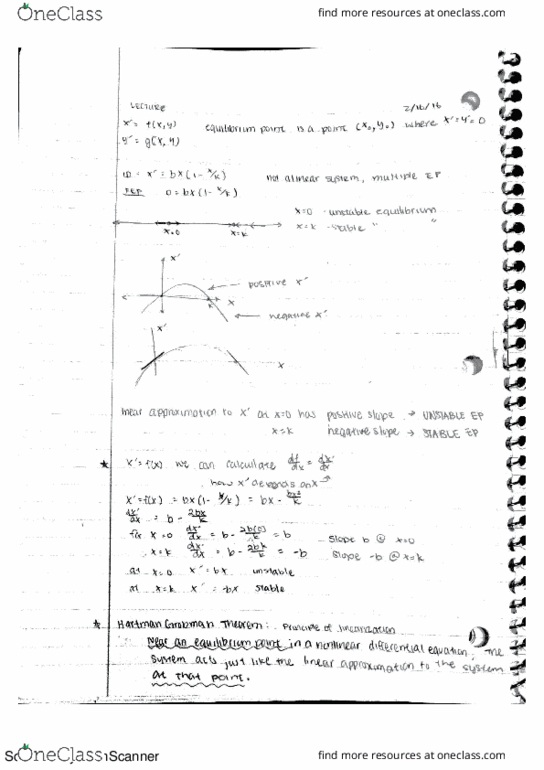 OneClass
find more resources at oneclass.com
LECTURE 2/16/16
x' = f(x,y) equilibrium point is a point (x₀,y₀) where x'=y'=0
y' = g(x,y)
1D - x' = bx(1-x/k) not a linear system, multiple EP
FEP 0 = bx(1-x/k)
x=0 - unstable equilibrium
x=k - stable " "
x=0 x=k
x'
positive x'
x
negative x'
x'
x
linear approximation to x' at x=0 has positive slope → UNSTABLE EP
x=k negative slope → STABLE EP
* x'=f(x) we can calculate df/dx = dx'/dx
how x' depends on x
x'=f(x) = bx(1-x/k) = bx - bx²/k
dx'/dx = b - 2bx/k
for x=0 dx'/dx = b - 2b(0)/k = b slope b @ x=0
x=k dx'/dx = b - 2bk/k = -b slope -b @ x=k
at x=0 x'=bx unstable
at x=k x' = -bx stable
* Hartman Grobman Theorem: Principle of linearization
Near an equilibrium point in a nonlinear differential equation, the
system acts just like the linear approximation to the system
at that point.
OneClass
Scanner
find more resources at oneclass.com